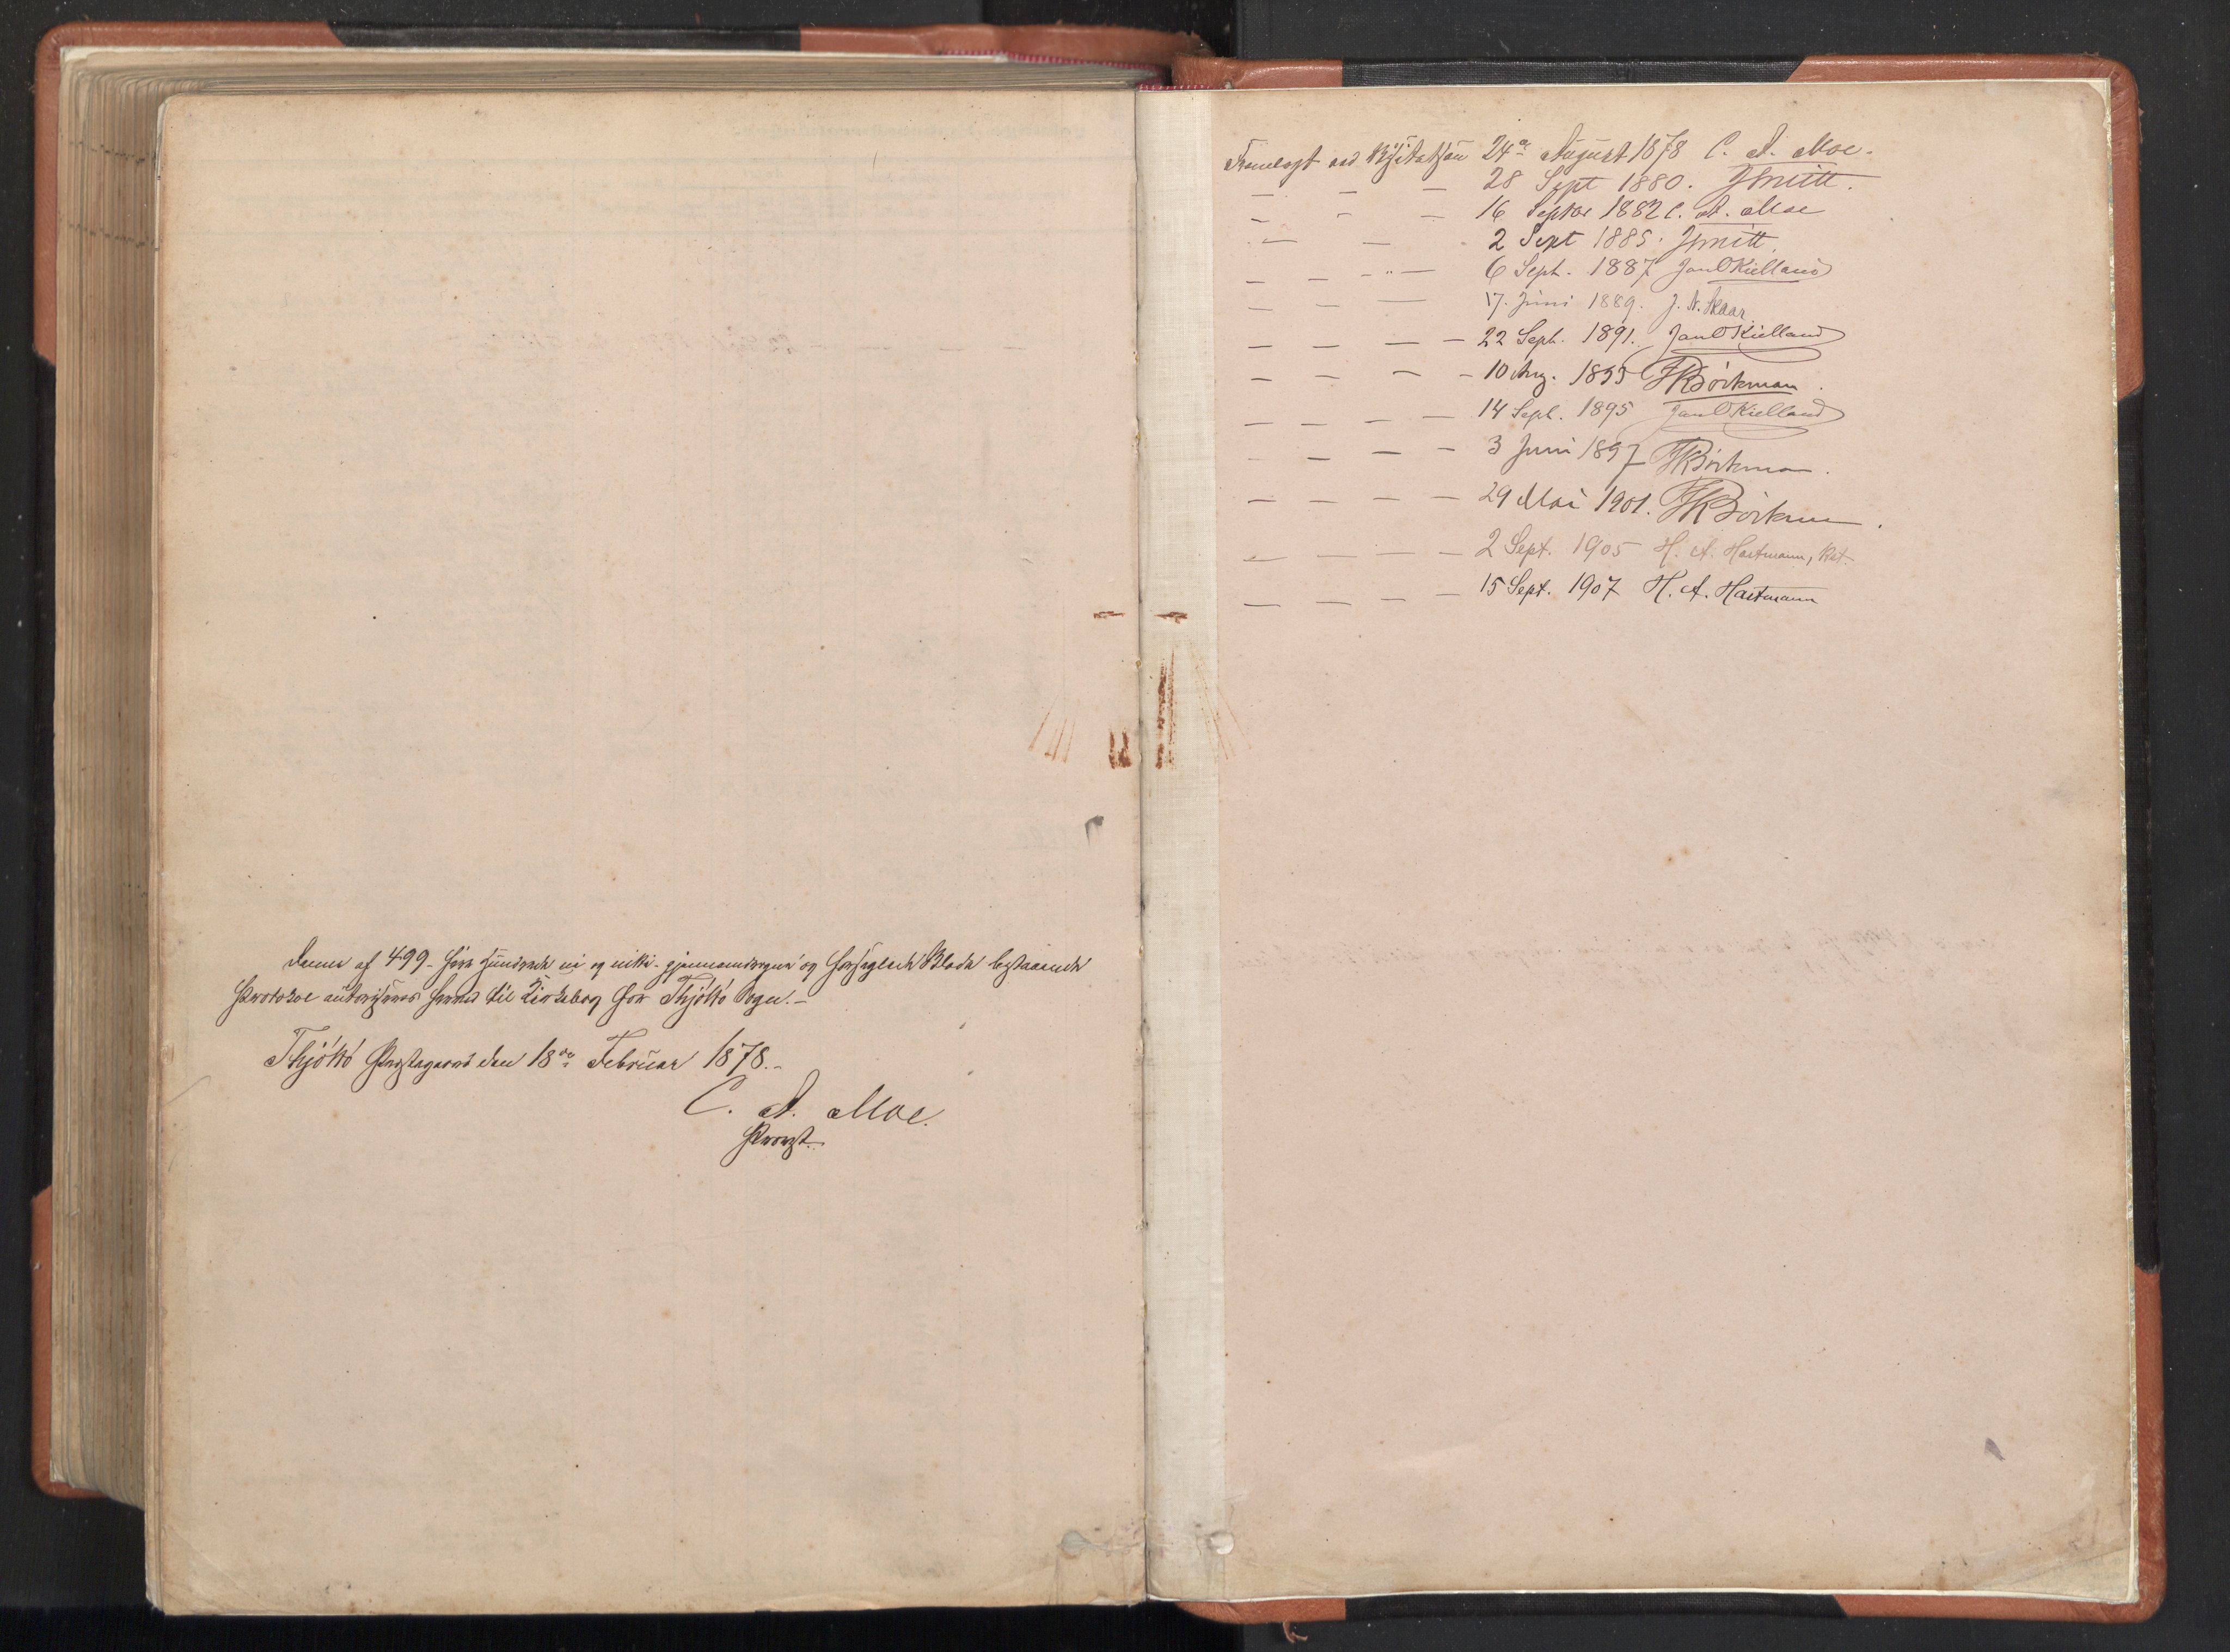 Denne af 499 - fire hundrede ni og nitti - gjennemdragne og forseglede Blade bestaaende
Protokol autoriseres herved til Kirkebog for Thjøttø Sogn. -
Thjøttø Præstegaard den 18de Februar 1878. -
C. A. Moe.
Provst.
Fremlagt ved Visitatsen 24de August 1878 C. A. Moe.
— — — 28 Sept 1880. JSmitt.
— — — 16 Septbr 1882 C. A. Moe
— — 2 Sept 1885. JSmitt.
— — — 6 Sept. 1887 Jan O Kielland
— — — 17. Juni 1889. J. N. Skaar.
— — — — 22 Sept. 1891. Jan O Kielland
— — — — 10 Aug. 1893 Børkman.
— — — — 14 Sept. 1895 Jan O Kielland
— — — — 3 Juni 1897 Børkman.
— — — — 29 Mai 1901. Børkman.
— — — — 2 Sept. 1905 H. A. Hartmann, Kst.
— — — — 15 Sept. 1907 H. A. Hartmann